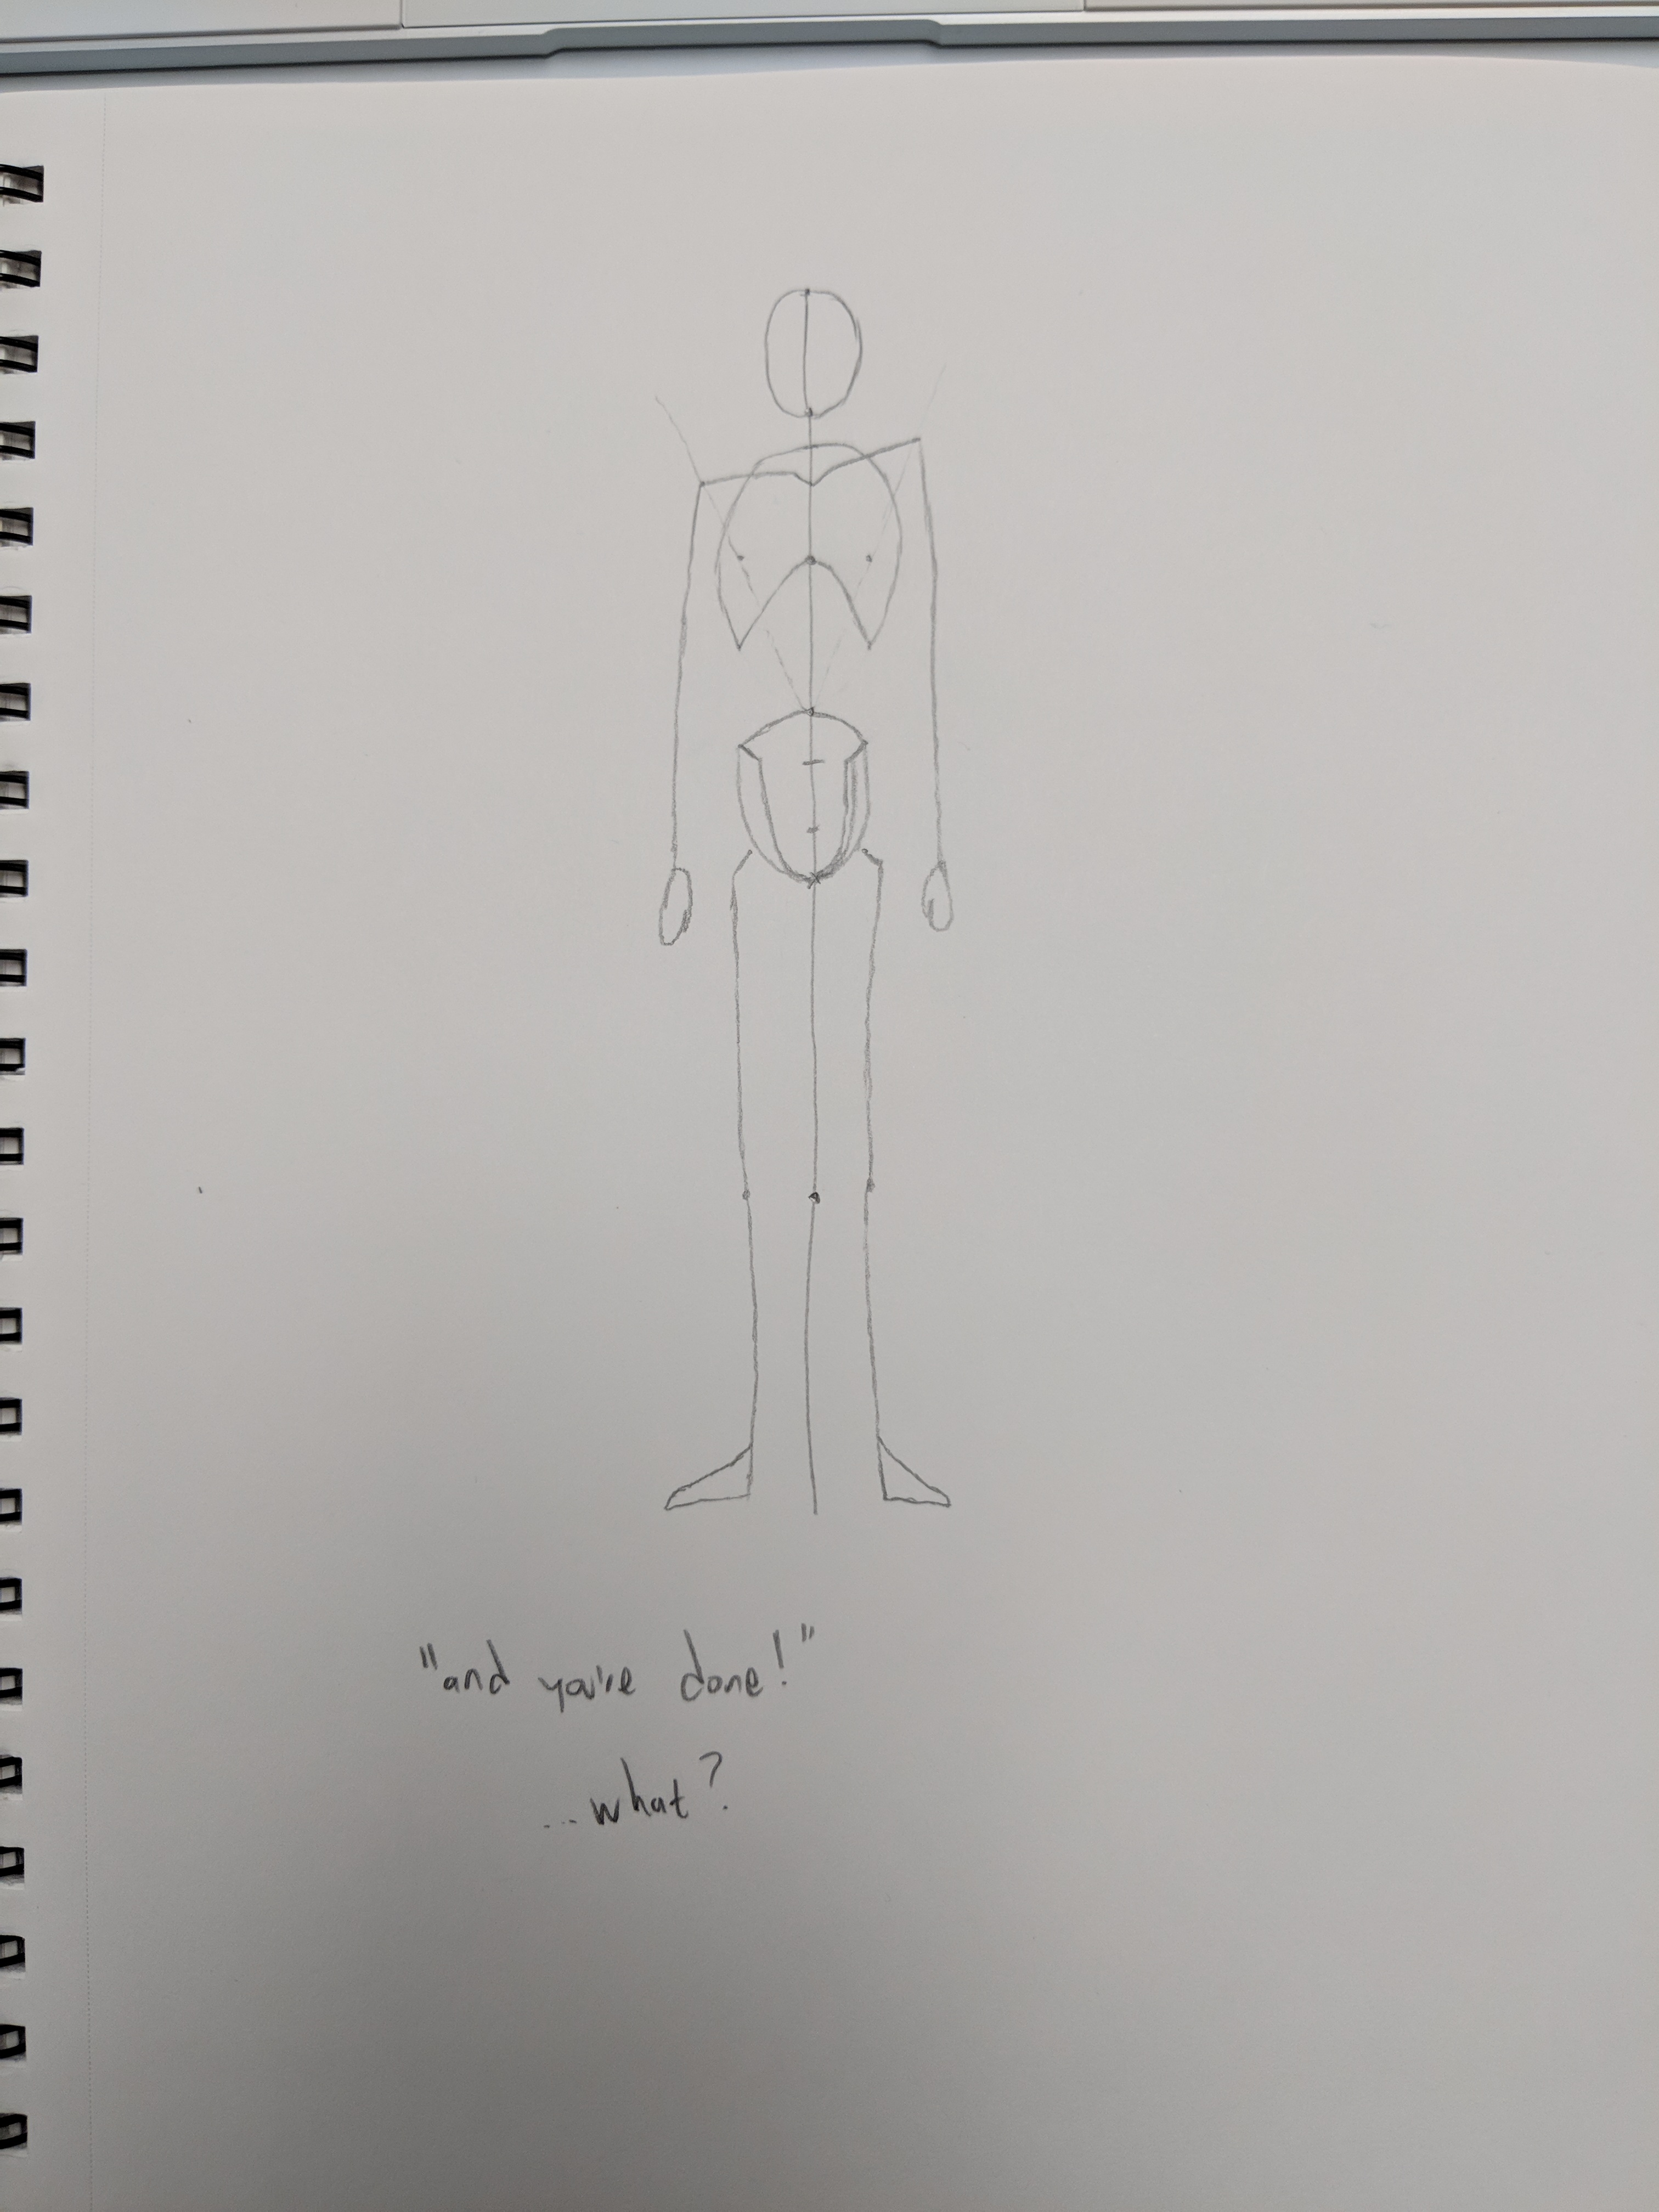 "and you're done!"
...what?